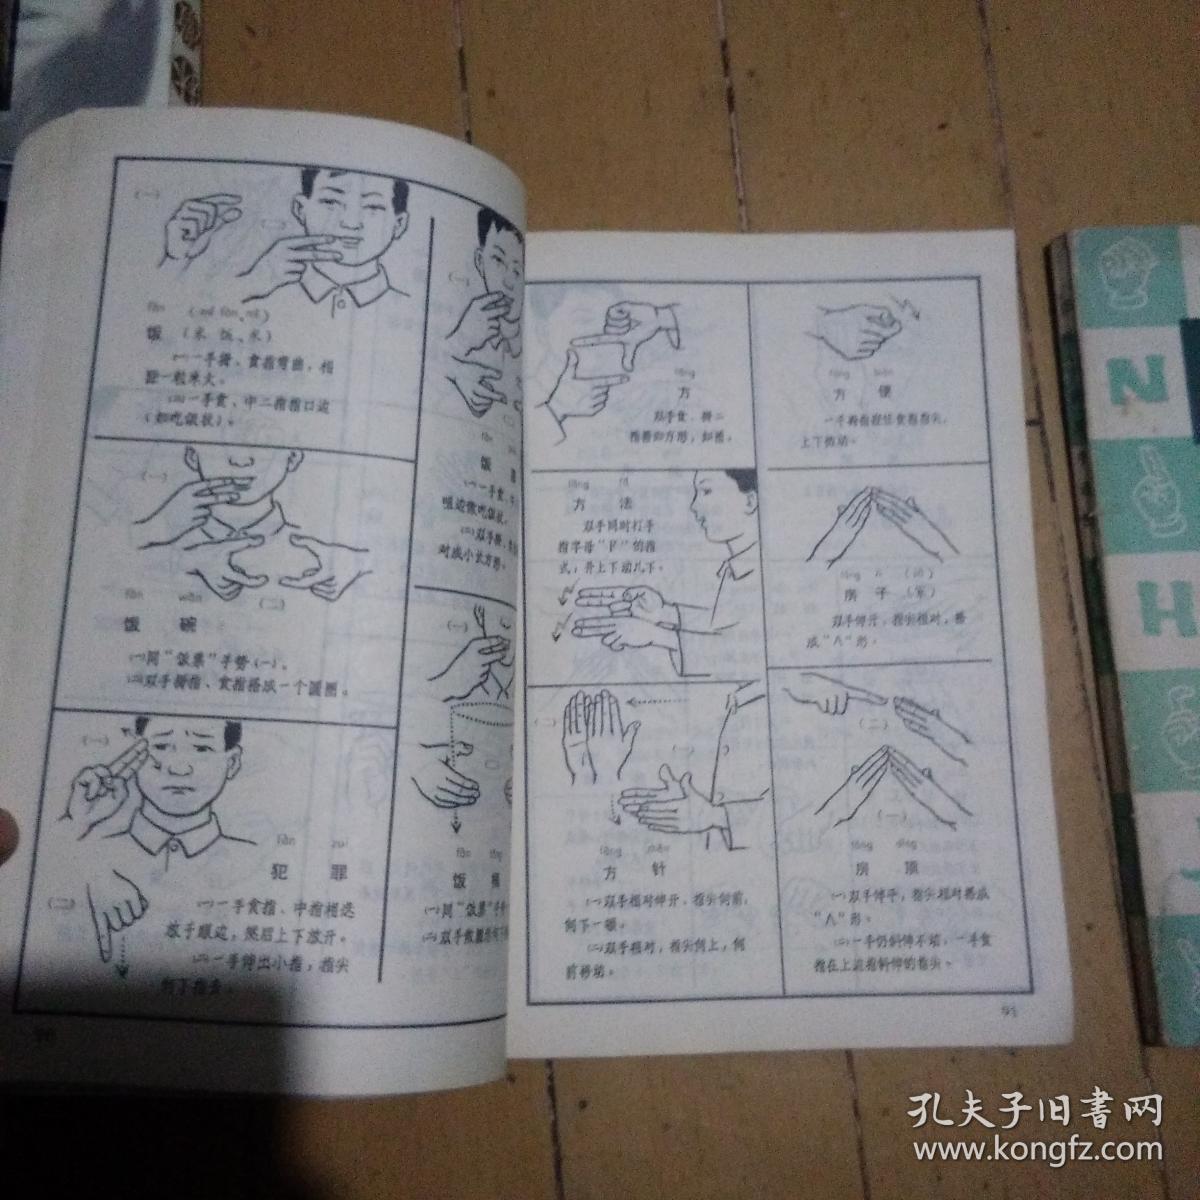 (一)
(二)
fàn
饭 (米 饭、米)
(一)一手拇、食指弯曲，相
距一粒米大。
(二)一手食、中二指指口边
(如吃饭状)。
(一)
(二)
fàn wǎn
饭 碗
(一)同“饭票”手势(一)。
(二)双手拇指、食指搭成一个圆圈。
(一)
(二)
fàn zuì
犯 罪
(一)一手食指、中指相迭
放于眼边，然后上下放开。
(二)一手伸出小指，指尖
向下指去。
(一)
饭
(一)一手食、中
嘴边做吃饭状。
(二)双手拇、食
对成小长方形。
(一)
(二)
fàn
饭 桶
(一)同“饭票”手
fāng
方
双手食、拇二
指搭如方形，如图。
fāng biàn
方 便
一手拇指捏住食指指尖，
上下动。
fāng fǎ
方 法
双手同时打手
指字母“F”的指
式，并上下动几下。
fáng zi
房 子 (家)
双手伸开，指尖相对，搭
成“八”形。
(二)
(一)
fāng zhēn
方 针
(一)双手相对伸开，指尖向前，
向下一顿。
(二)双手相对，指尖向上，向
前移动。
(二)
(一)
fáng dǐng
房 顶
(一)双手伸平，指尖相对搭成
“八”形。
(二)一手仍斜伸不动，一手食
指在上边指斜伸的指尖。
91
N
H
孔夫子旧書网
www.kongfz.com